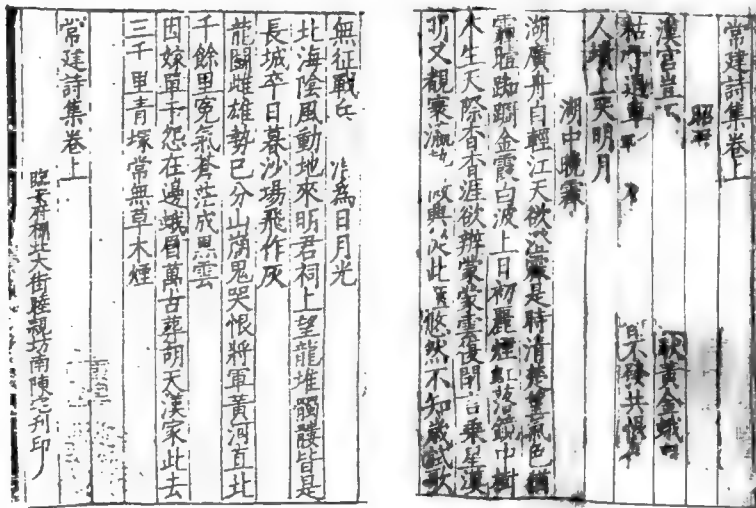 常建詩集卷上
昭
漢宮豈 馱黃金蛾
枯 不發共恨
人墳上哭明月
湖中晚霽
湖廣舟自輕江天欲 霽是時清楚望氣色猶
霾曀踟躕金霞白波上日初麗煙虹落鏡中樹
木生天際杳杳涯欲辨蒙蒙雲復閉言乘星漢
明又覩寰瀛勢 興從此愜悠然不知歲試歌
無征戰兵 為日月光
北海陰風動地來明君祠上望龍堆髑髏皆是
長城卒日暮沙場飛作灰
龍鬬雌雄勢已分山崩鬼哭恨將軍黃河直北
千餘里冤氣蒼茫成黑雲
因嫁單于怨在邊蛾眉萬古葬胡天漢家此去
三千里青塚常無草木煙
常建詩集卷上
臨安府棚北大街睦親坊南陳宅刊印